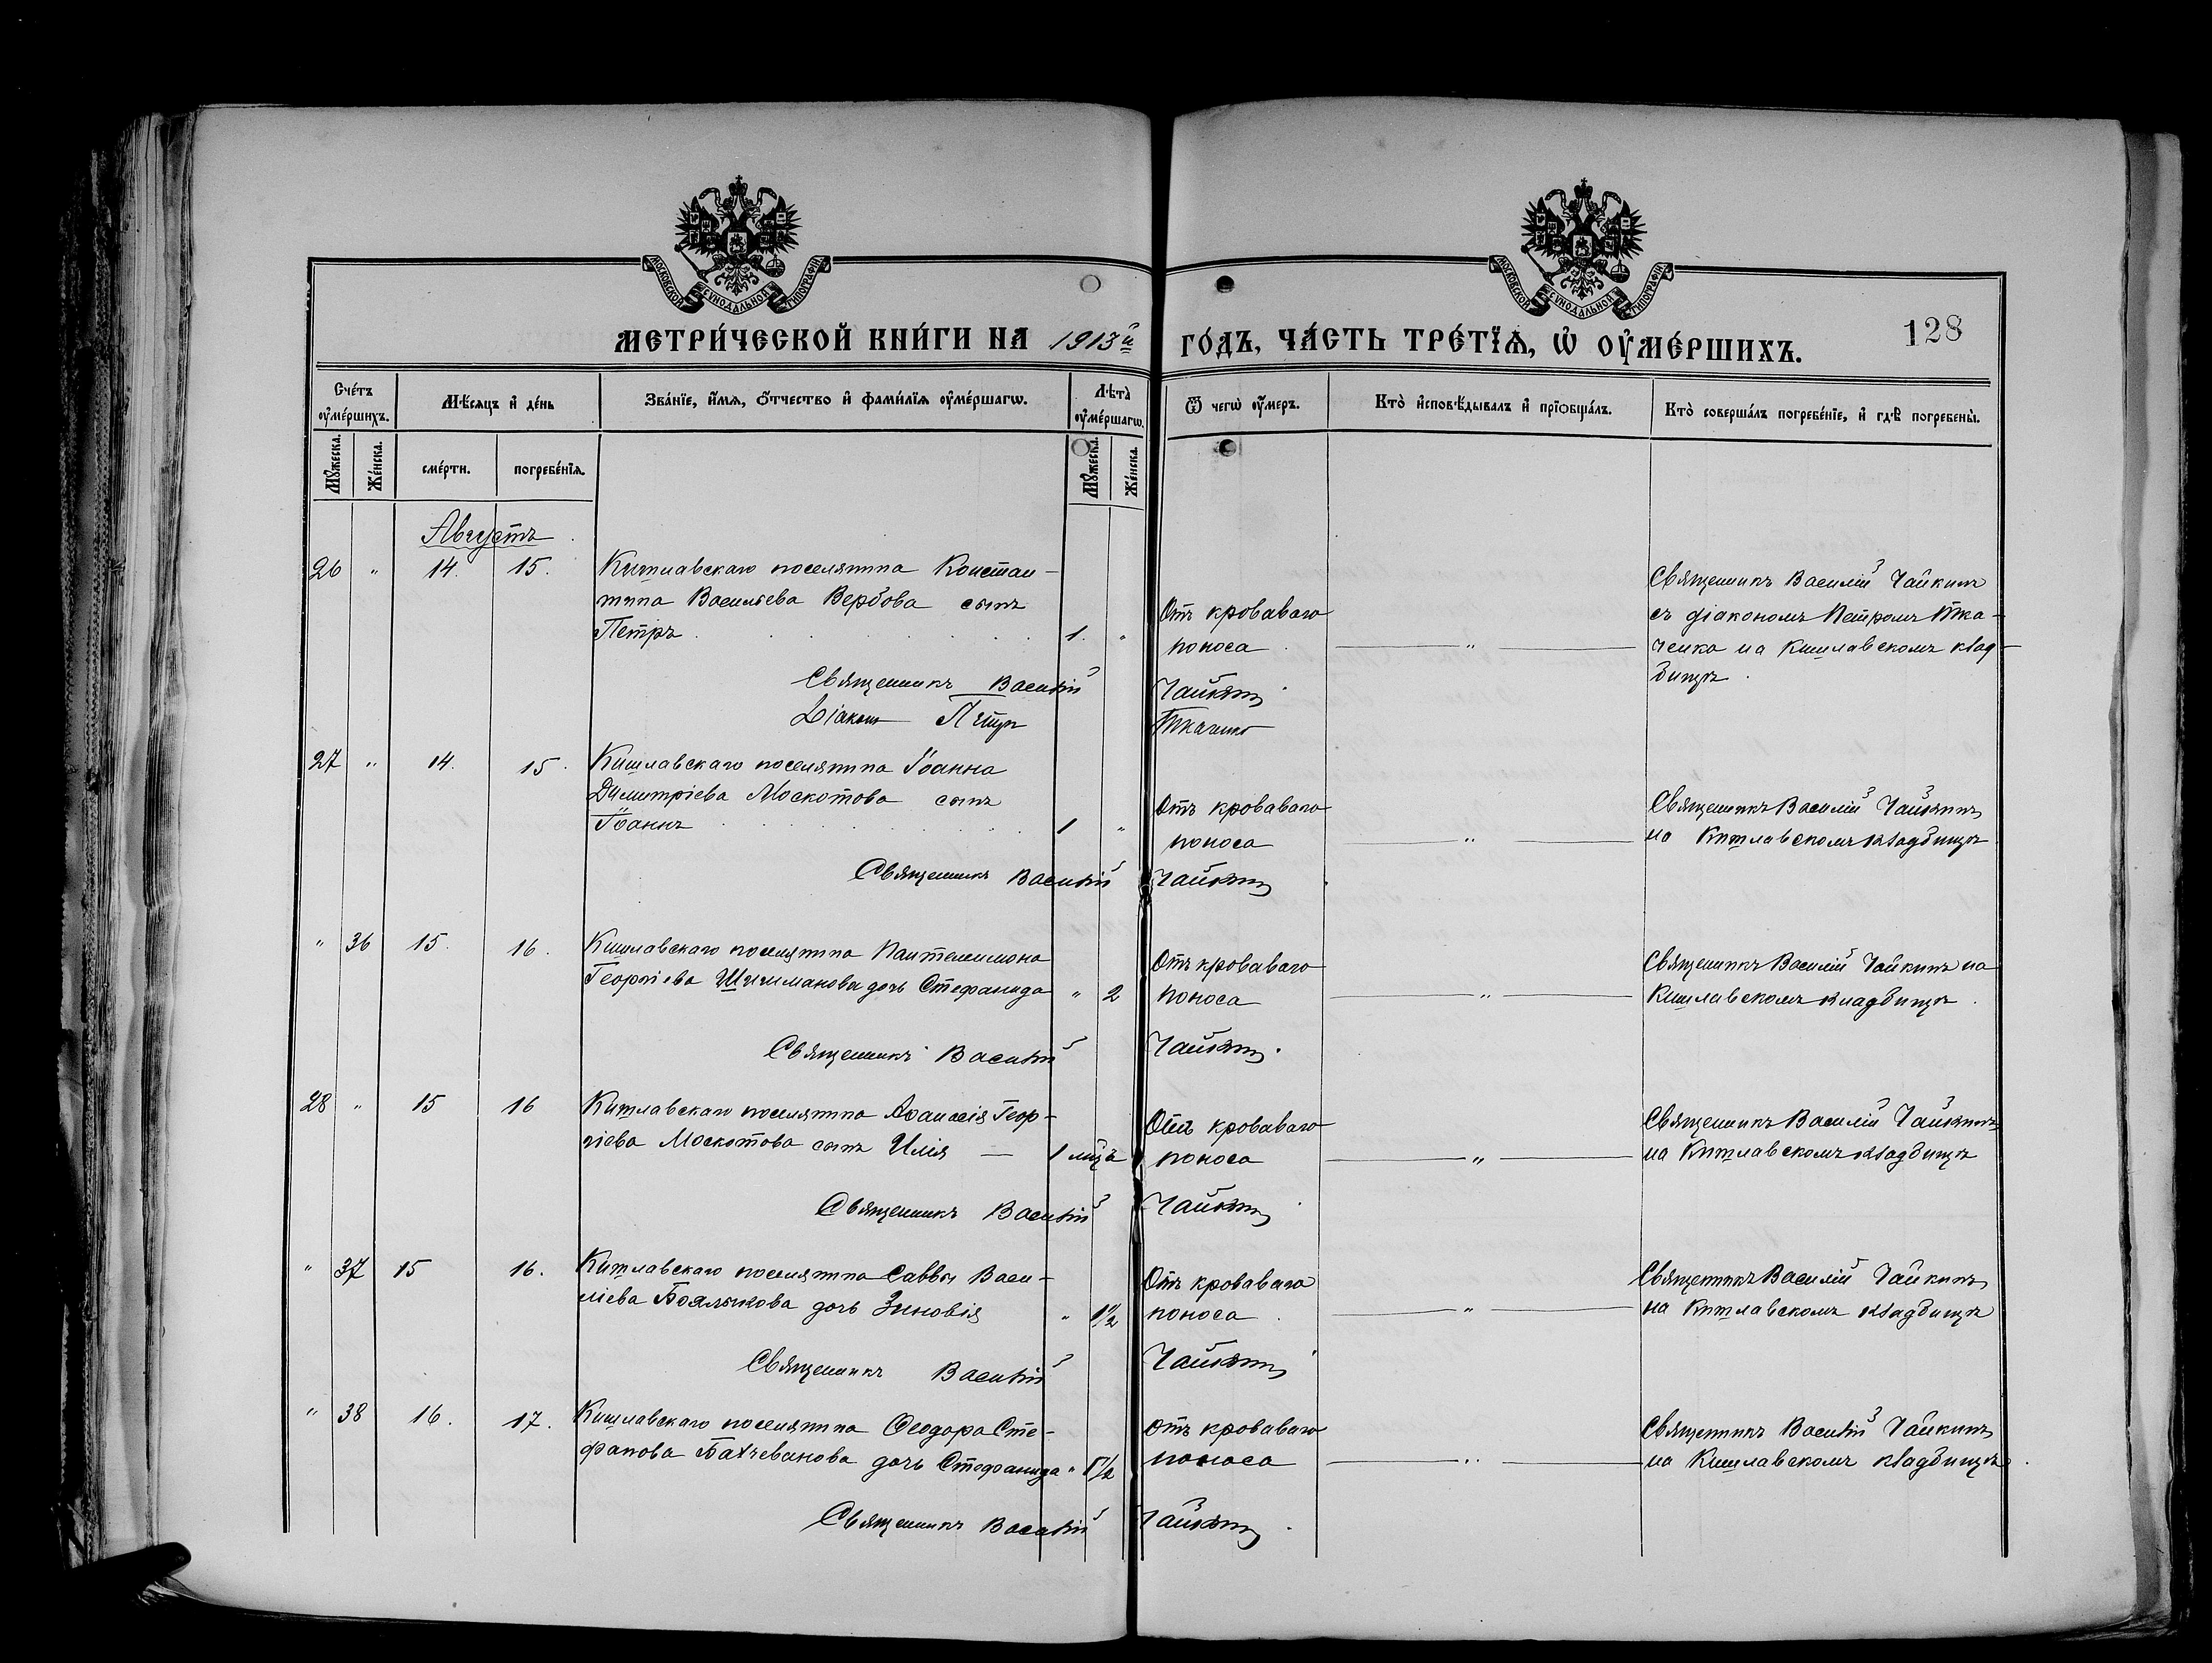 МОСКОВСКОЙ СѴНОДАЛЬНОЙ ТИПОГРАФІИ
МОСКОВСКОЙ СѴНОДАЛЬНОЙ ТИПОГРАФІИ
МЕТРИ́ЧЕСКОЙ КНИ́ГИ НА 1913й ГО́ДЪ, ЧА́СТЬ ТРЕ́ТЇѦ, Ѡ҆ ОУ҆МЕ́РШИХЪ.
128
Сче́тъ оу҆ме́ршихъ.
Мѣ́сѧцъ и҆ де́нь
Зва́нїе, и҆́мѧ, ѻ҆́тчество и҆ фами́лїѧ оу҆ме́ршагѡ.
Лѣ́та оу҆ме́ршагѡ.
Ѿ чегѡ̀ оу҆́меръ.
Кто̀ и҆сповѣ́дывалъ и҆ прїѻбща́лъ.
Кто̀ соверша́лъ погребе́нїе, и҆ гдѣ̀ погребены̀.
Мꙋ́жеска.
Же́нска.
сме́рти.
погребе́нїѧ.
Мꙋ́жеска.
Же́нска.
Августъ
26 " 14. 15. Кишлавскаго поселянина Констан-
тина Васильева Вербова сынъ
Петръ 1. "
Отъ кроваваго
поноса
"
Священникъ Василій Чайкинъ
съ діакономъ Петромъ Тка-
ченко на Кишлавскомъ клад-
бищѣ.
Священникъ Василій Чайкинъ
Діаконъ Петръ Ткаченко
27 " 14. 15. Кишлавскаго поселянина Іоанна
Димитріева Москотова сынъ
Іоаннъ 1 "
Отъ кроваваго
поноса
"
Священникъ Василій Чайкинъ
на Кишлавскомъ кладбищѣ
Священникъ Василій Чайкинъ
" 36 15. 16. Кишлавскаго поселянина Пантелимона
Георгіева Шишманова дочь Стефанида " 2
Отъ кроваваго
поноса
"
Священникъ Василій Чайкинъ на
Кишлавскомъ кладбищѣ.
Священникъ Василій Чайкинъ.
28 " 15 16 Кишлавскаго поселянина Аѳанасія Геор-
гіева Москотова сынъ Илія — 1 мѣц.
Отъ кроваваго
поноса
"
Священникъ Василій Чайкинъ
на Кишлавскомъ кладбищѣ
Священникъ Василій Чайкинъ
" 37 15 16. Кишлавскаго поселянина Саввы Васи-
ліева Боялыкова дочь Зиновія " 1½
Отъ кроваваго
поноса.
"
Священникъ Василій Чайкинъ
на Кишлавскомъ кладбищѣ
Священникъ Василій Чайкинъ
" 38 16. 17. Кишлавскаго поселянина Ѳеодора Сте-
фанова Бахчеванова дочь Стефанида " 1½
отъ кроваваго
поноса
"
Священникъ Василій Чайкинъ
на Кишлавскомъ кладбищѣ.
Священникъ Василій Чайкинъ.